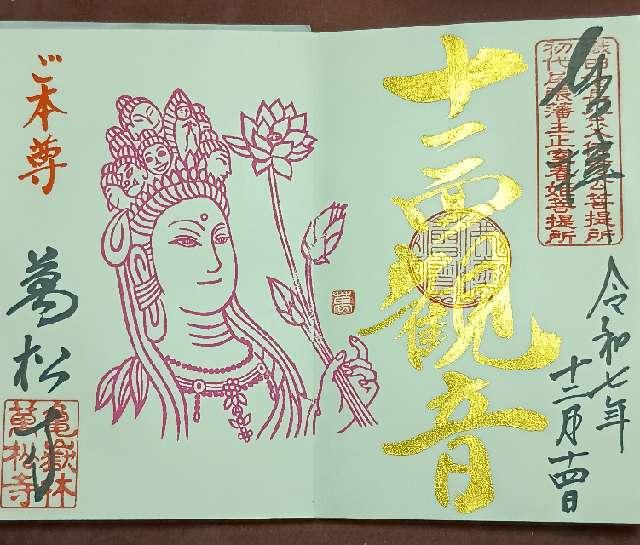 奉拝
初代尾張藩主正室春姫菩提所
令和七年
十二月十四日
十一面観音
萬
ご本尊
萬松寺
亀嶽林
萬松寺